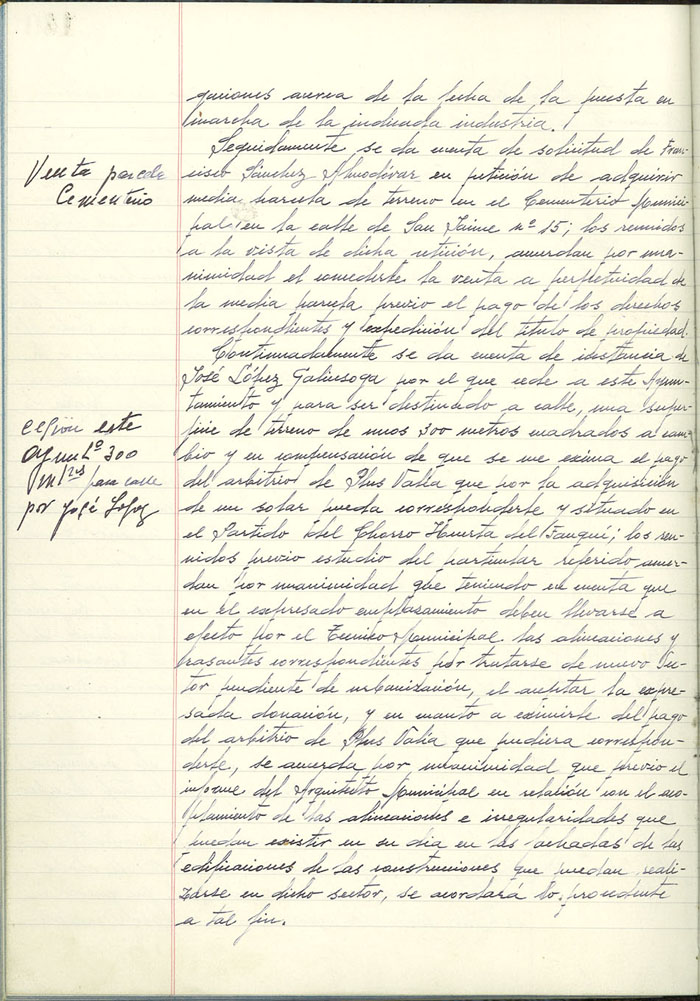 gaciones acerca de la fecha de la puesta en
marcha de la indicada industria.
Venta parcela
Cementerio
Seguidamente se da cuenta de solicitud de Fran-
cisco Sánchez Almodóvar en petición de adquirir
media parcela de terreno en el Cementerio Munici-
pal en la calle de San Jaime nº 15; los reunidos
a la vista de dicha petición, acuerdan por una-
nimidad el concederle la venta a perpetuidad de
la media parcela previo el pago de los derechos
correspondientes y expedición del título de propiedad.
Continuadamente se da cuenta de instancia de
José López Galiesoga por el que cede a este Ayun-
tamiento y para ser destinado a calle, una super-
ficie de terreno de unos 300 metros cuadrados a cam-
bio y en compensación de que se me exima el pago
del arbitrio de Plus Valia que por la adquisición
de un solar pueda corresponderle y situado en
el Partido del Chorro Huerta del ; los reu-
nidos previo estudio del particular referido acuer-
dan por unanimidad que teniendo en cuenta que
en el expresado emplazamiento deben llevarse a
efecto por el Tecnico Municipal las alineaciones y
rasantes correspondientes por tratarse de nuevo Sec-
tor pendiente de urbanización, el aceptar la expre-
sada donación, y en cuanto a eximirle del pago
del arbitrio de Plus Valia que pudiera correspon-
derle, se acuerda por unanimidad que previo el
informe del Arquitecto Municipal en relación con el aco-
plamiento de las alineaciones e irregularidades que
puedan existir en su día en las fachadas de las
edificaciones de las construcciones que puedan reali-
zarse en dicho sector, se acordará lo procedente
a tal fin.
cesión este
Ayunto 300
m2s para calle
por José López